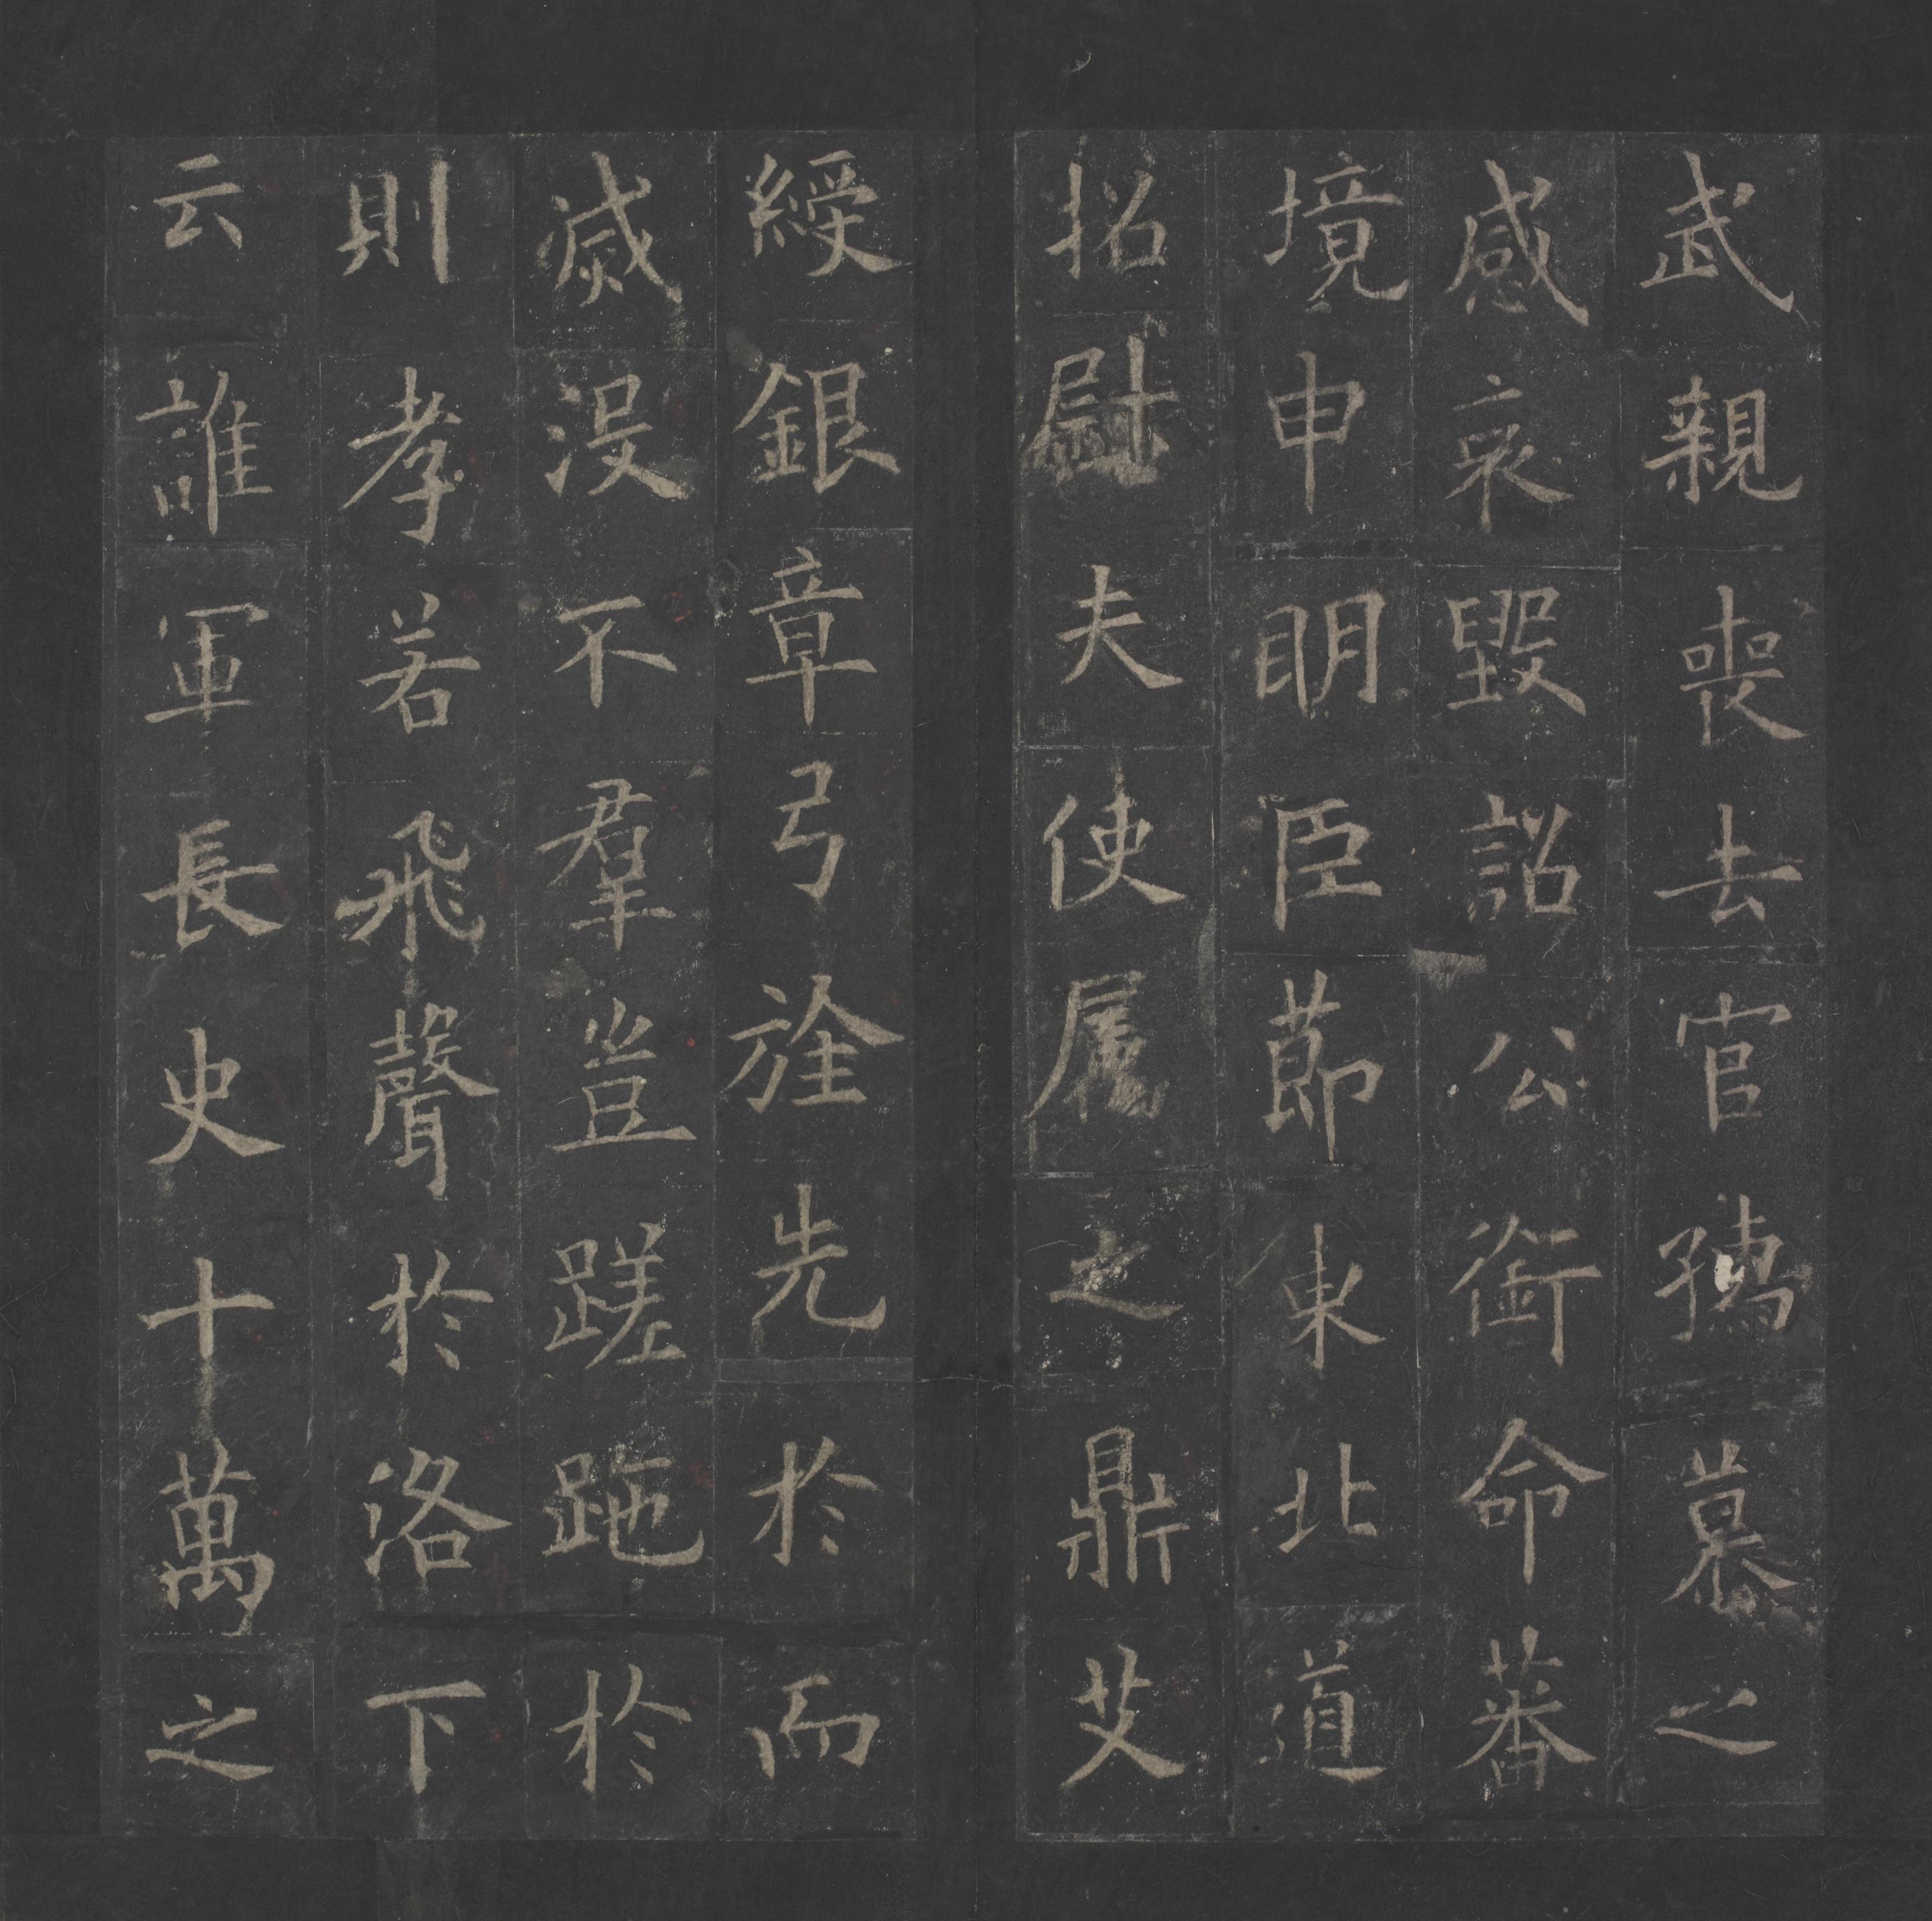 武親喪去官孺慕之
感哀毀詔公銜命蕃
境申明臣節東北道
招慰夫使属之鼎艾
綬銀章弓旌先於而
滅没不羣豈蹉跎於
則孝若飛聲於洛下
云誰軍長史十萬之